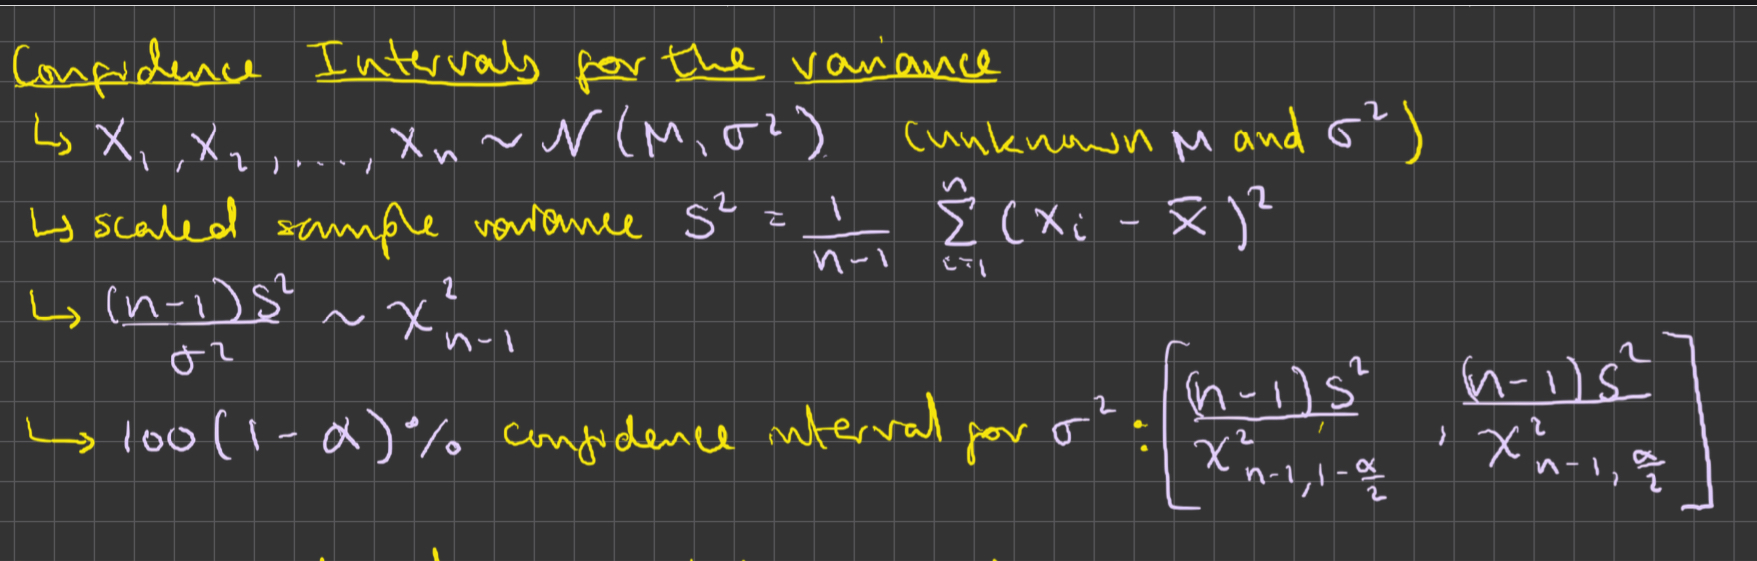 Confidence Intervals for the variance
↳ X₁, X₂, ...., Xₙ ~ N(μ, σ²). (unknown μ and σ²)
↳ scaled sample variance S² = 1/(n-1) ∑ᵢ₌₁ⁿ (Xᵢ - X̄)²
↳ (n-1)S²/σ² ~ χ²ₙ₋₁
↳ 100(1-α)% confidence interval for σ² : [(n-1)S²/χ²_{n-1, 1-α/2}, (n-1)S²/χ²_{n-1, α/2}]